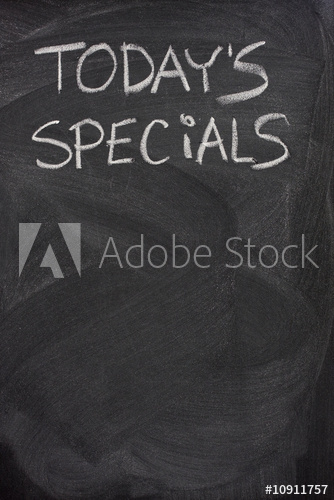 TODAY'S
SPECiALS
Adobe Stock
#10911757